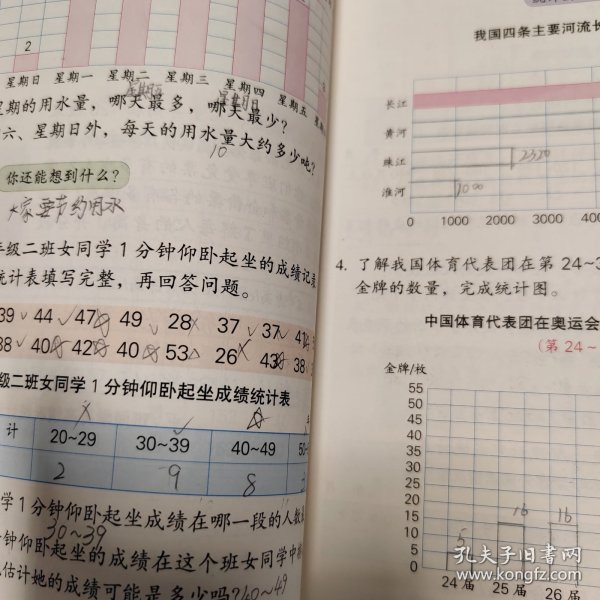 2
星期日 星期一 星期二 星期三 星期四 星期五
星期五 星期日
星期的用水量，哪天最多，哪天最少？
六、星期日外，每天的用水量大约多少吨？
10
你还能想到什么？
大家要节约用水
年级二班女同学1分钟仰卧起坐的成绩记录
统计表填写完整，再回答问题。
39 44 47 49 28 37 37 41
38 40 42 40 53 26 43 38
级二班女同学1分钟仰卧起坐成绩统计表
计 20~29 30~39 40~49 50~
2 9 8
学1分钟仰卧起坐成绩在哪一段的人数
30~39
分钟仰卧起坐的成绩在这个班女同学中
估计她的成绩可能是多少吗？40~49
我国四条主要河流长
长江
黄河
珠江 2320
淮河 1000
0 1000 2000 3000 4000
4. 了解我国体育代表团在第24~3
金牌的数量，完成统计图。
中国体育代表团在奥运会
（第24~
金牌/枚
55
50
45
40
35
30
25
20
15
10
5
0
5 16 16
24届 25届 26届
孔夫子旧书网
www.kongfz.com